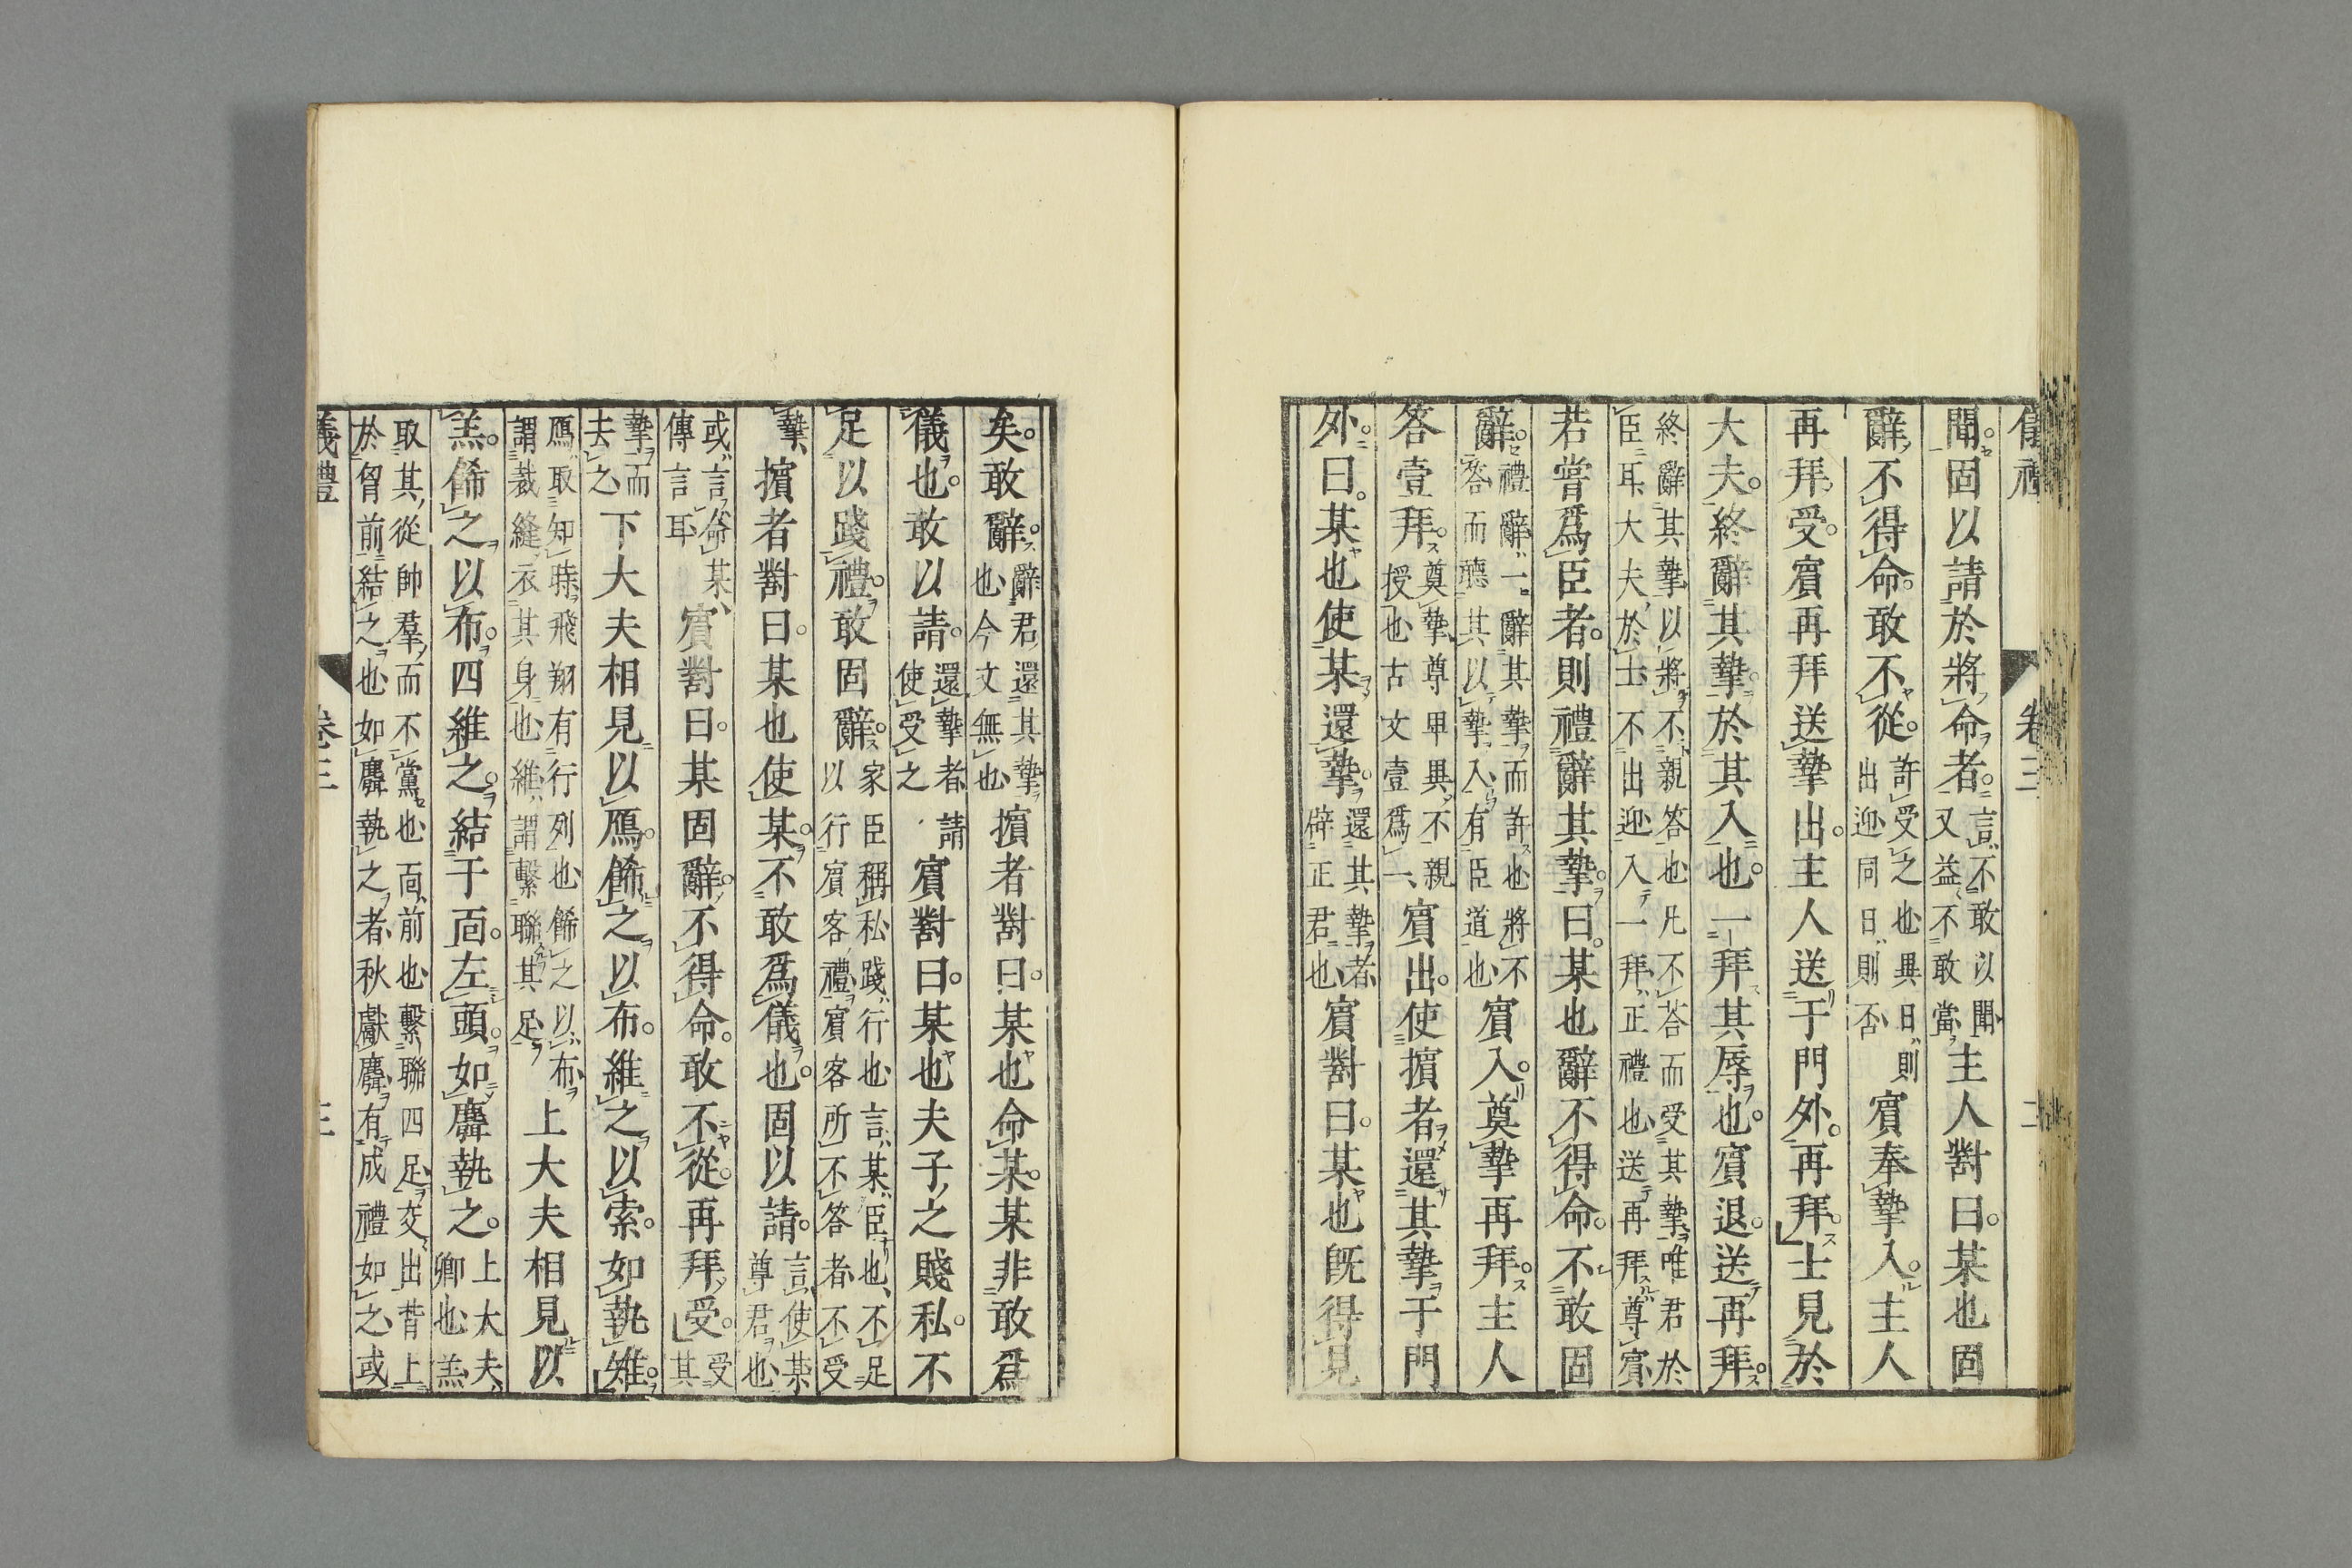 儀禮 卷三 二
聞。固以請於將命者。言不敢以聞又益不敢當主人對曰。某也固
辭不得命。敢不從。許受之也異日則出迎同日則否賓奉摯入。主人
再拜受。賓再拜送摯出。主人送于門外。再拜。士見於
大夫。終辭其摯。於其入也。一拜其辱也。賓退。送再拜。
終辭其摯以將不親答也凡不荅而受其摯唯君於臣耳大夫於士不出迎入一拜正禮也送再拜尊賓
若嘗爲臣者。則禮辭其摯。曰。某也辭不得命。不敢固
辭。禮辭一辭其摯而許也將不答而聽其以摯入有臣道也賓入。奠摯再拜。主人
答壹拜。奠摯尊卑異不親授也古文壹爲一賓出。使擯者還其摯于門
外。曰。某也使某還摯。還其摯者辟正君也賓對曰。某也既得見
矣。敢辭。辭君還其摯也今文無也擯者對曰。某也命某。某非敢爲
儀也。敢以請。還摯者請使受之賓對曰。某也夫子之賤私。不
足以踐禮。敢固辭。家臣稱私踐行也言某臣也不足以行賓客禮賓客所不答者不受
摯擯者對曰。某也使某。不敢爲儀也。固以請。言使某尊君也
或言命某傳言耳賓對曰。某固辭。不得命。敢不從。再拜受。受其
摯而去之下大夫相見以鴈。飾之以布。維之以索。如執雉。
鴈取知時飛翔有行列也飾之以布謂裁縫衣其身也維謂繫聯其足上大夫相見以
羔。飾之以布。四維之。結于面。左頭。如麛執之。上大夫卿也羔
取其從帥羣而不黨也面前也繫聯四足交出背上於胷前結之也如麛執之者秋獻麛有成禮如之或
儀禮 卷三 三